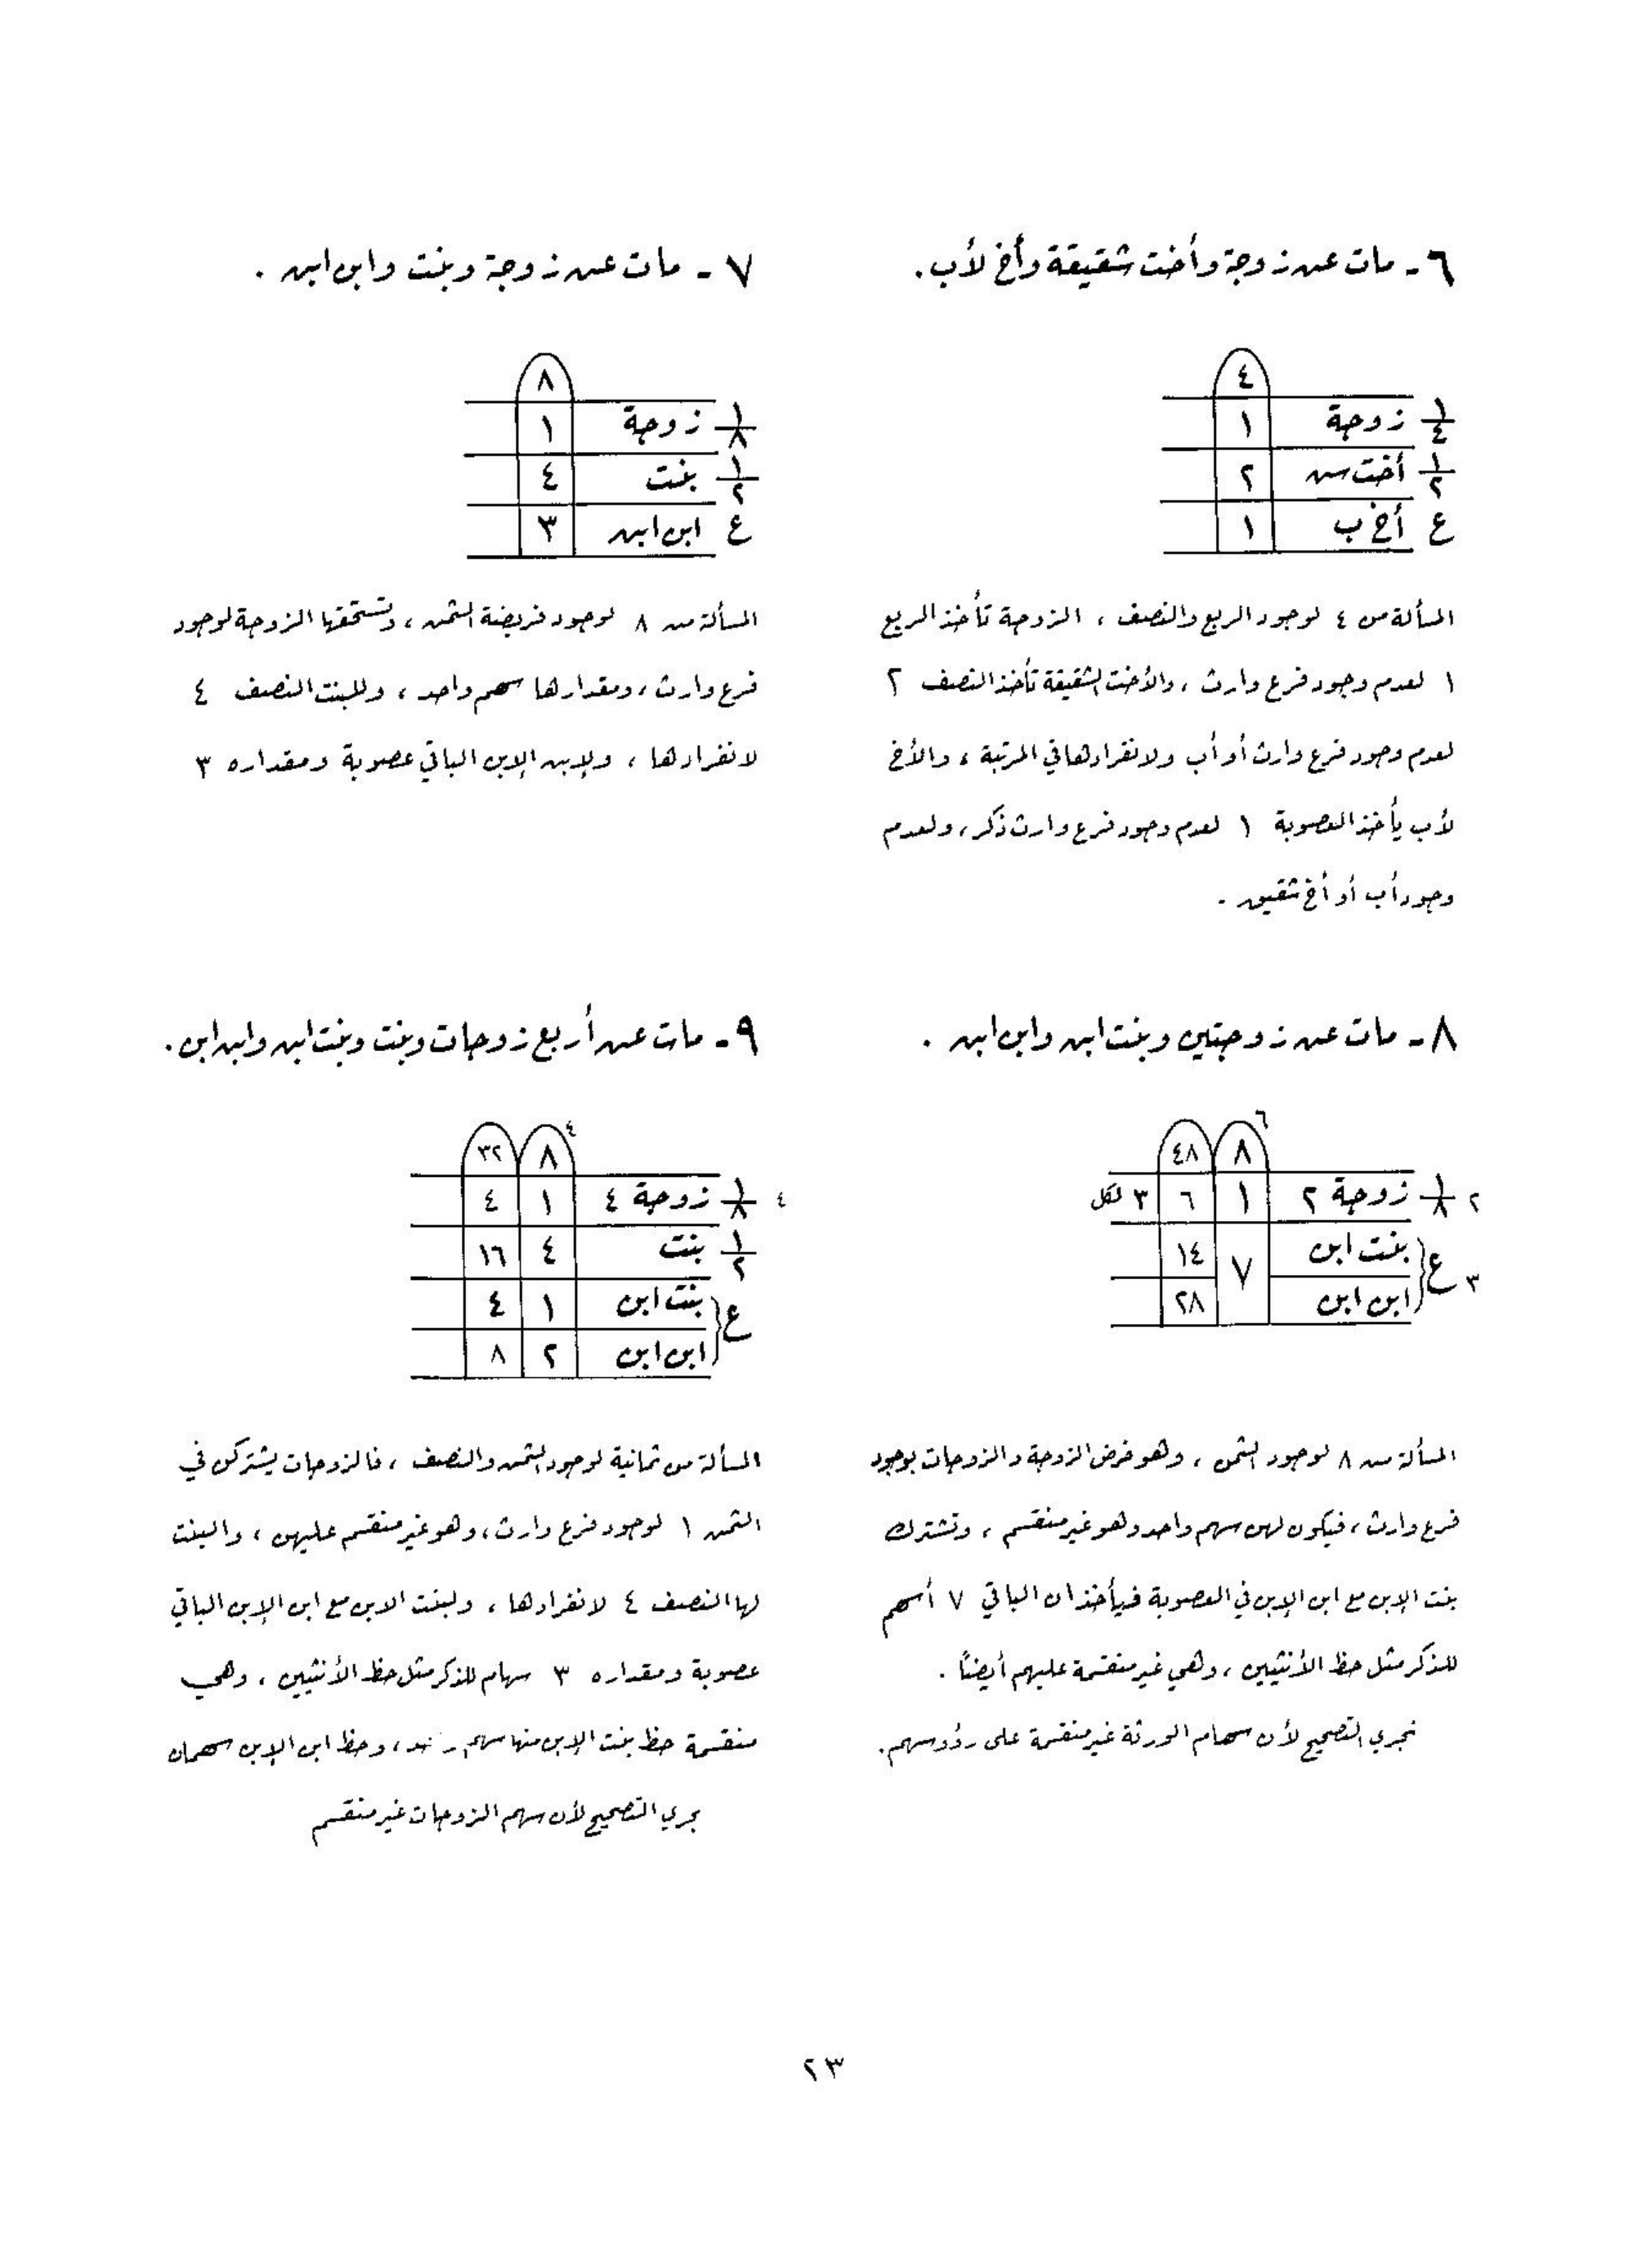 ٦ - مات عن زوجة وأخت شقيقة وأخ لأب .
٤
١/٤ زوجة ١
١/٢ أخت ش ٢
ع أخ ب ١
المسألة من ٤ لوجود الربع والنصف ، الزوجة تأخذ الربع
١ لعدم وجود فرع وارث ، والأخت الشقيقة تأخذ النصف ٢
لعدم وجود فرع وارث أو أب ولانفرادها في المرتبة ، والأخ
لأب يأخذ العصوبة ١ لعدم وجود فرع وارث ذكر ، ولعدم
وجود أب أو أخ شقيق .
٧ - مات عن زوجة وبنت وابن ابن .
٨
١/٨ زوجة ١
١/٢ بنت ٤
ع ابن ابن ٣
المسألة من ٨ لوجود فريضة الثمن ، وتستحقها الزوجة لوجود
فرع وارث ، ومقدارها سهم واحد ، وللبنت النصف ٤
لانفرادها ، ولابن الإبن الباقي عصوبة ومقداره ٣
٨ - مات عن زوجتين وبنت ابن وابن ابن .
٦
٨ ٤٨
٢ ١/٨ زوجة ٢ ١ ٦ ٣ لكل
٣ ع بنت ابن ٧ ١٤
ابن ابن ٢٨
المسألة من ٨ لوجود الثمن ، وهو فرض الزوجة والزوجات بوجود
فرع وارث ، فيكون لهن سهم واحد وهو غير منقسم ، وتشترك
بنت الإبن مع ابن الإبن في العصوبة فيأخذان الباقي ٧ أسهم
للذكر مثل حظ الأنثيين ، وهي غير منقسمة عليهم أيضاً .
نجري التصحيح لأن سهام الورثة غير منقسمة على رؤوسهم .
٩ - مات عن أربع زوجات وبنت وبنت ابن وابن ابن .
٤
٨ ٣٢
٤ ١/٨ زوجة ٤ ١ ٤
١/٢ بنت ٤ ١٦
ع بنت ابن ١ ٤
ابن ابن ٢ ٨
المسألة من ثمانية لوجود الثمن والنصف ، فالزوجات يشتركن في
الثمن ١ لوجود فرع وارث ، وهو غير منقسم عليهن ، والبنت
لها النصف ٤ لانفرادها ، ولبنت الابن مع ابن الإبن الباقي
عصوبة ومقداره ٣ سهام للذكر مثل حظ الأنثيين ، وهي
منقسمة حظ بنت الإبن منها سهم ، وحظ ابن الإبن سهمان
يجري التصحيح لأن سهم الزوجات غير منقسم
٢٣